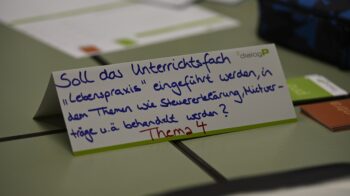 dialog P
Soll das Unterrichtsfach
"Lebenspraxis" eingeführt werden, in
dem Themen wie Steuererklärung, Mietver-
träge u.ä behandelt werden?
Thema 4